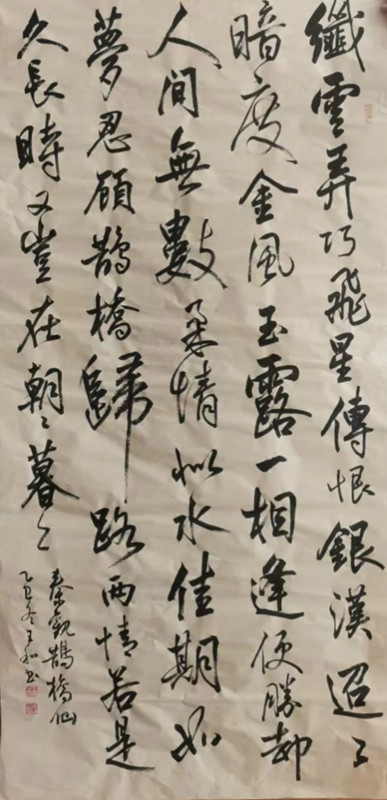 纖雲弄巧飛星傳恨銀漢迢〻
暗度金風玉露一相逢便勝卻
人間無數柔情似水佳期如
夢忍顧鵲橋歸路兩情若是
久長時又豈在朝〻暮〻
秦觀鵲橋仙
乙巳冬王和书